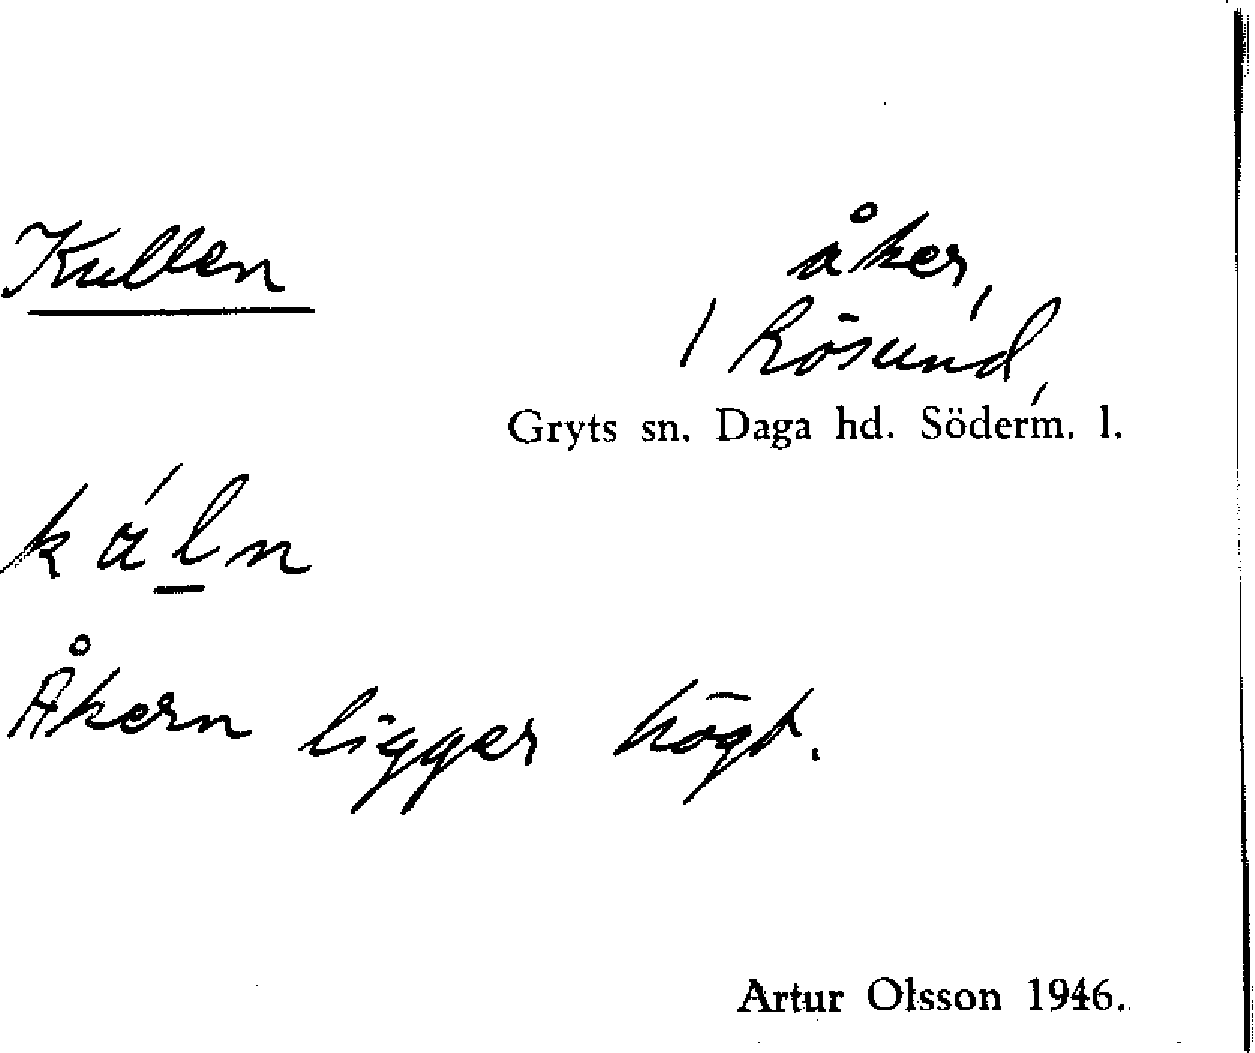 Kullen
åker,
1 Rösund,
Gryts sn. Daga hd. Söderm. l.
k á l n
Åkern ligger högt.
Artur Olsson 1946.